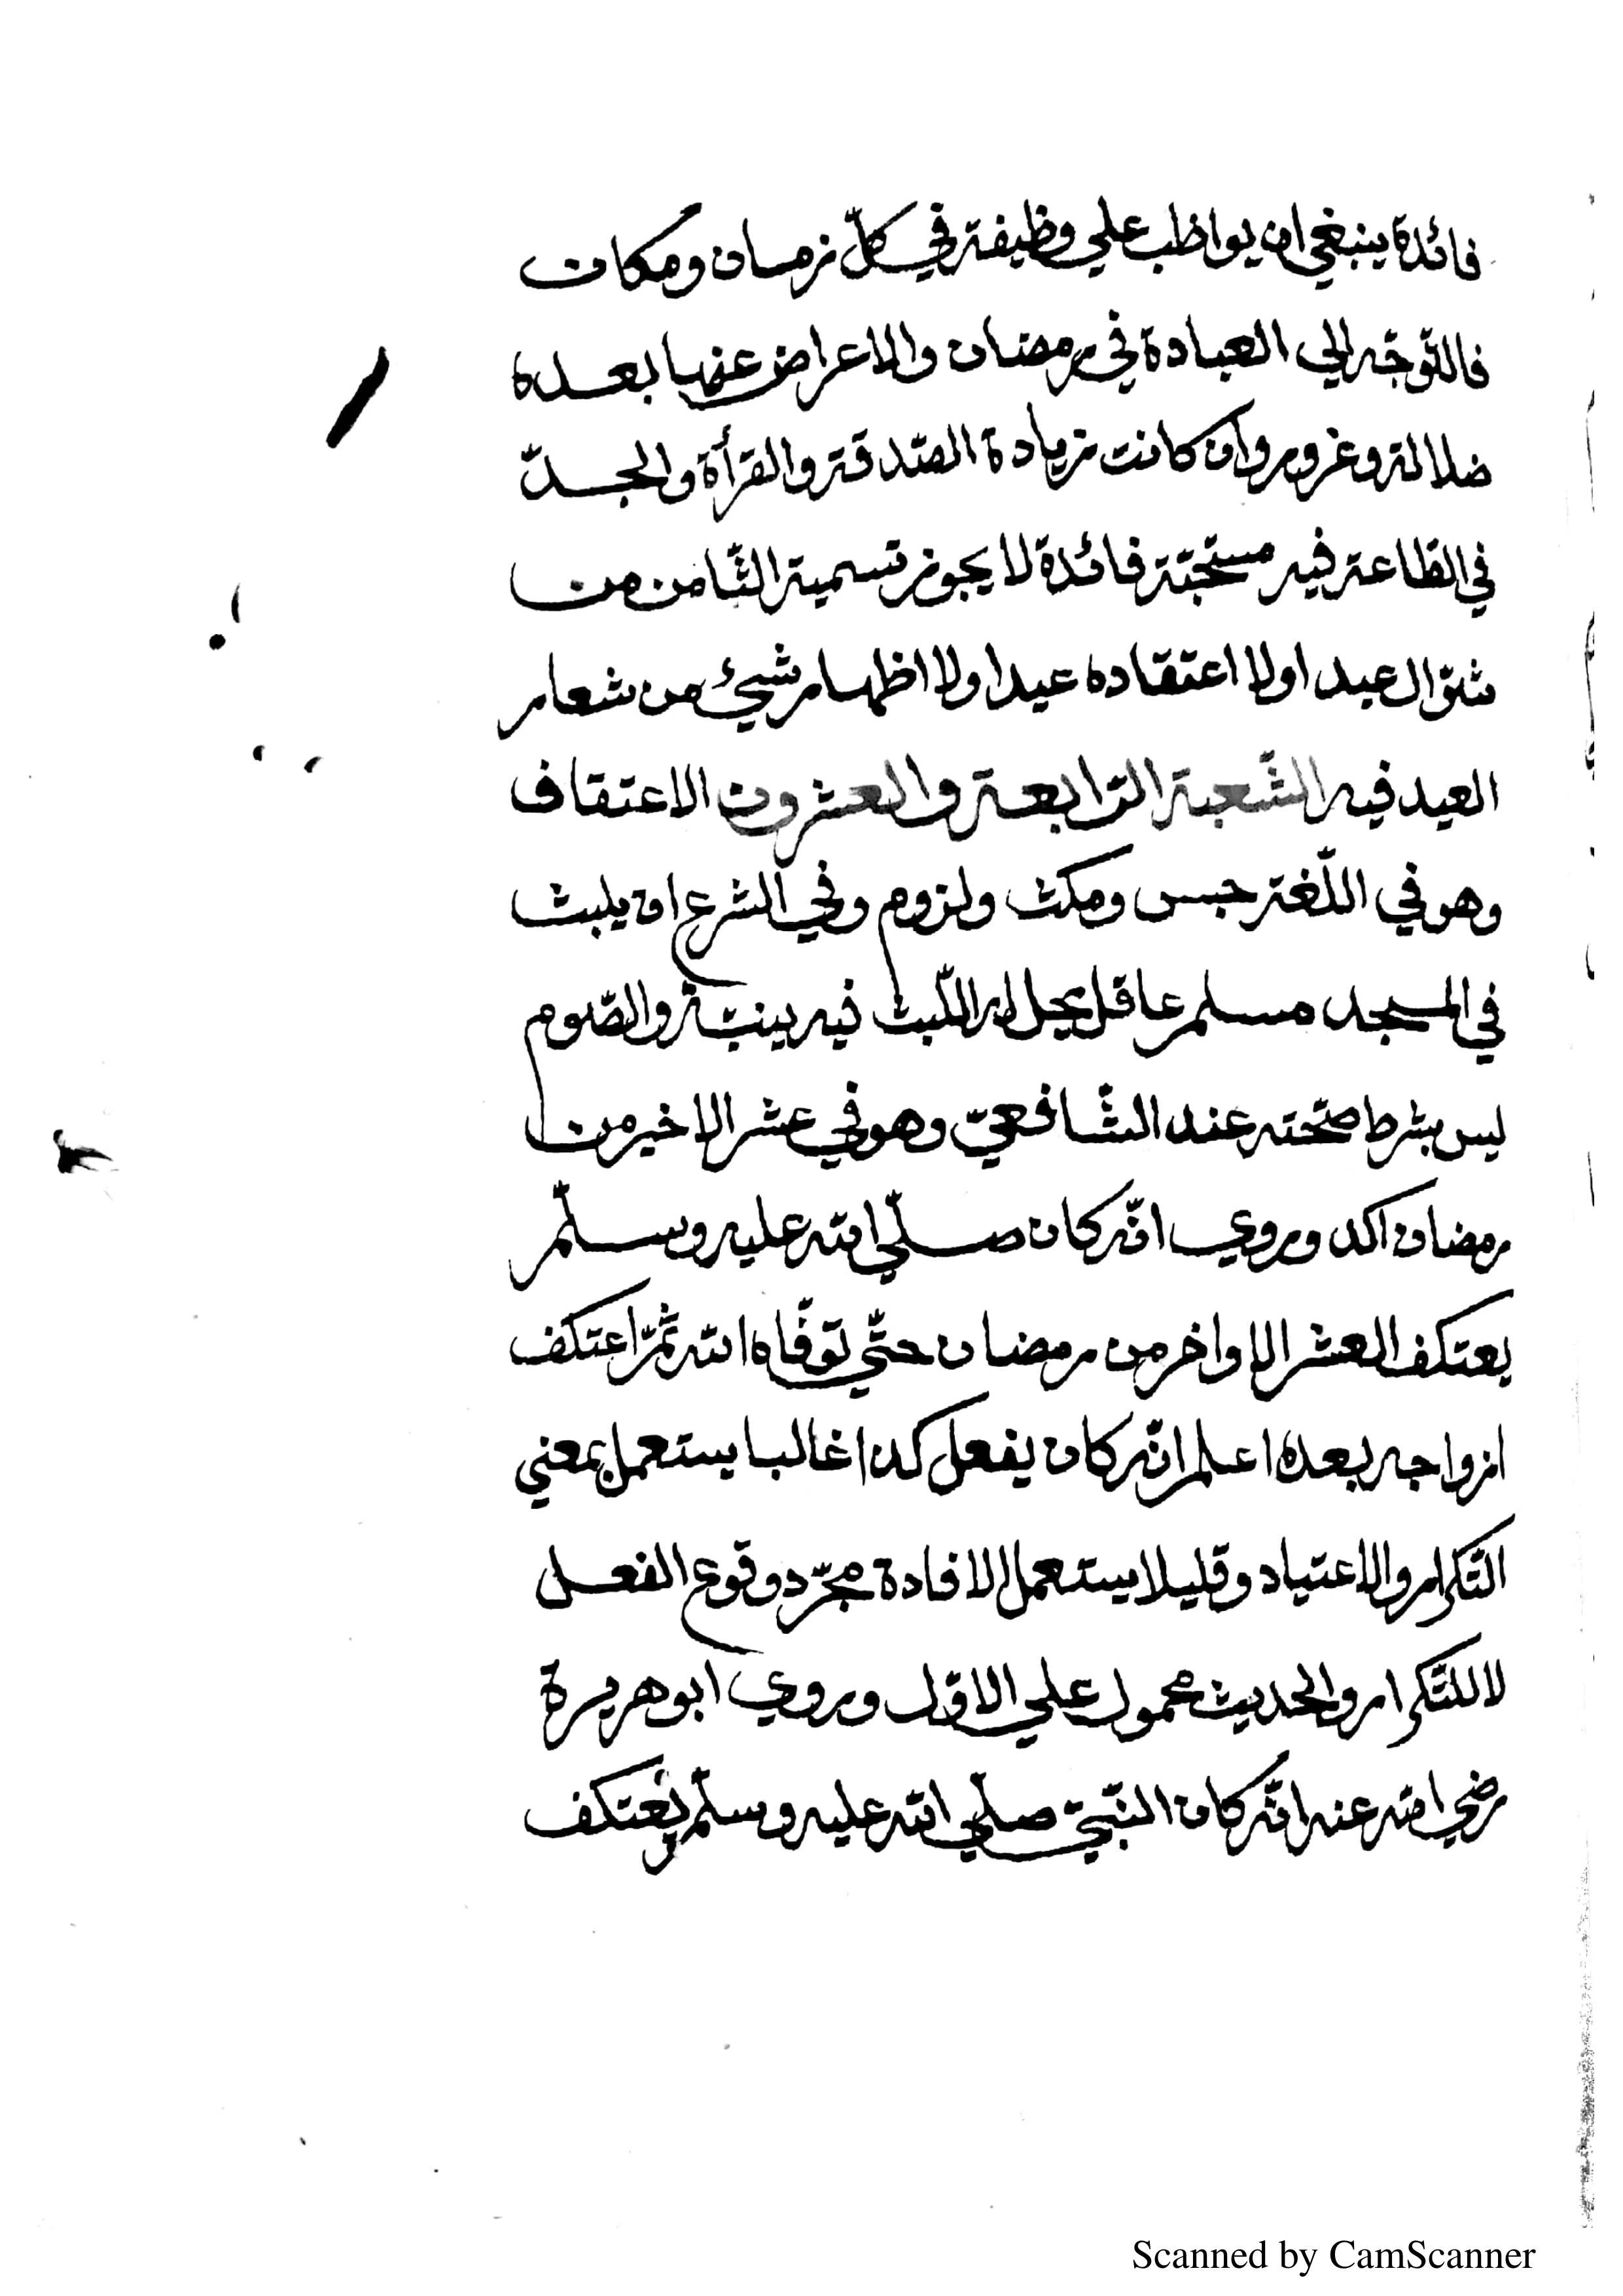 فائدة ينبغي ان يواظب علي وظيفة في كلّ زمان ومكان
فالتّوجّه الي العبادة في رمضان والاعراض عنها بعده
ضلالة وغرور وان كانت زيادة الصّدقة والقرأة والجدّ
في الطّاعة فيه مستحبّة فائدة لا يجوز تسمية الثّامن من
شوّال عيدا ولا اعتقاده عيدا ولا اظهار شيئ من شعار
العيد فيه الشّعبة الرّابعة والعشرون الاعتقاف
وهو في اللّغة حبس ومكث ولزوم وفي الشرع ان يلبث
في المسجد مسلم عاقل يحل له اللّبث فيه بنيّة والصّوم
ليس بشرط صحّته عند الشّافعيّ وهو في عشر الاخير من
رمضان اكد وروي انّه كان صلّي الله عليه وسلّم
يعتكف العشر الاواخر من رمضان حتّي توفّاه الله ثمّ اعتكف
ازواجه بعده اعلم انّه كان يفعل كذا غالبا يستعمل بمعني
التّكرار والاعتياد وقليلا يستعمل لافادة مجرّد وقوع الفعل
لا للتّكرار والحديث محمول علي الاوّل وروي ابو هريرة
رضي الله عنه انّه كان النّبيّ صلّي الله عليه وسلّم يعتكف
Scanned by CamScanner